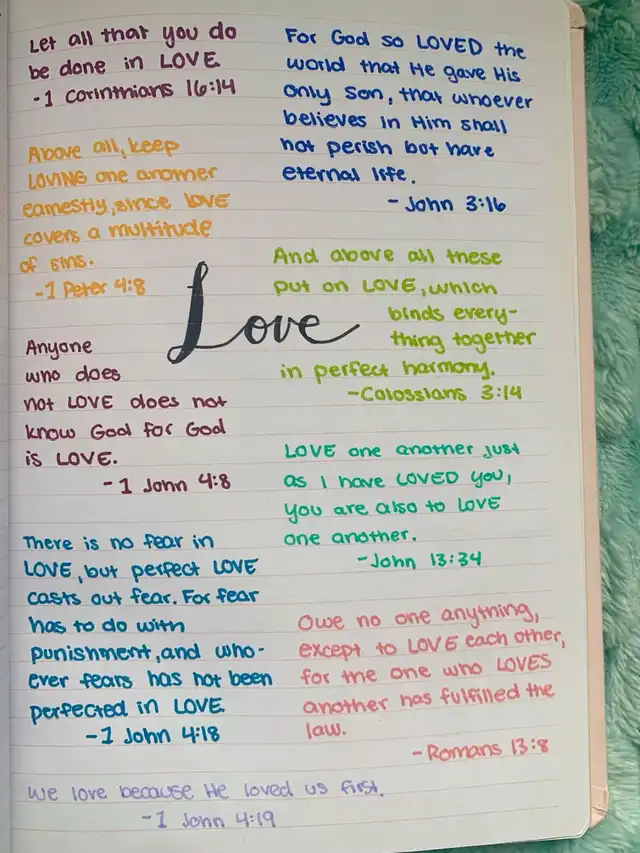 Let all that you do
be done in LOVE.
-1 Corinthians 16:14
Above all, keep
LOVING one another
earnestly, since LOVE
covers a multitude
of sins.
-1 Peter 4:8
Anyone
who does
not LOVE does not
know God for God
is LOVE.
-1 John 4:8
There is no fear in
LOVE, but perfect LOVE
casts out fear. For fear
has to do with
punishment, and who-
ever fears has not been
perfected in LOVE.
-1 John 4:18
We love because He loved us first.
-1 John 4:19
Love
For God so LOVED the
world that He gave His
only Son, that whoever
believes in Him shall
not perish but have
eternal life.
- John 3:16
And above all these
put on LOVE, which
binds every-
thing together
in perfect harmony.
-Colossians 3:14
LOVE one another just
as I have LOVED you,
you are also to LOVE
one another.
-John 13:34
Owe no one anything,
except to LOVE each other,
for the one who LOVES
another has fulfilled the
law.
-Romans 13:8